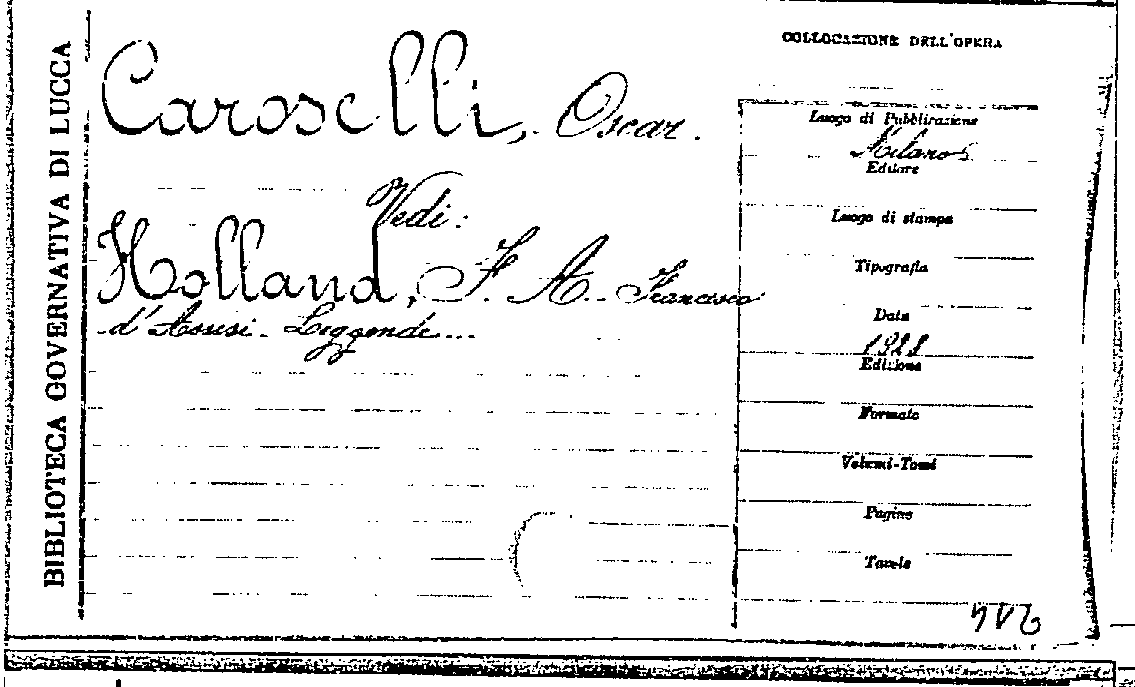 BIBLIOTECA GOVERNATIVA DI LUCCA
Caroselli, Oscar.
Vedi:
Holland, F. A. Francesco
d'Assisi. Leggende...
COLLOCAZIONE DELL'OPERA
Luogo di Pubblicazione
Milano
Editore
Luogo di stampa
Tipografia
Data
1928
Edizione
Formato
Volumi-Tomi
Pagine
Tavole